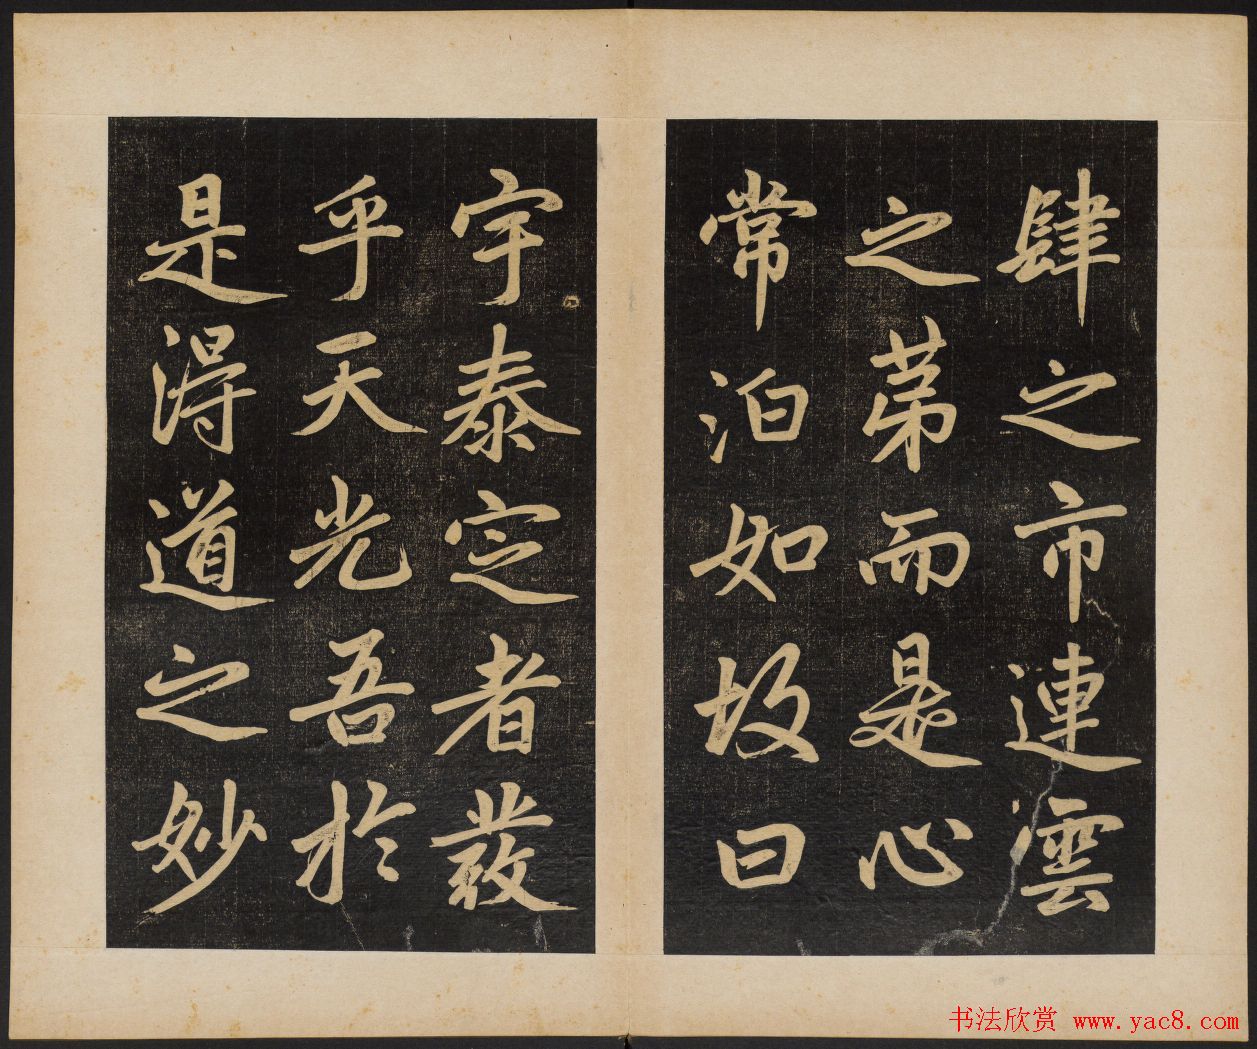 肆之市連雲
之苐而是心
常泊如故曰
宇泰定者發
乎天光吾於
是得道之妙
书法欣赏 www.yac8.com